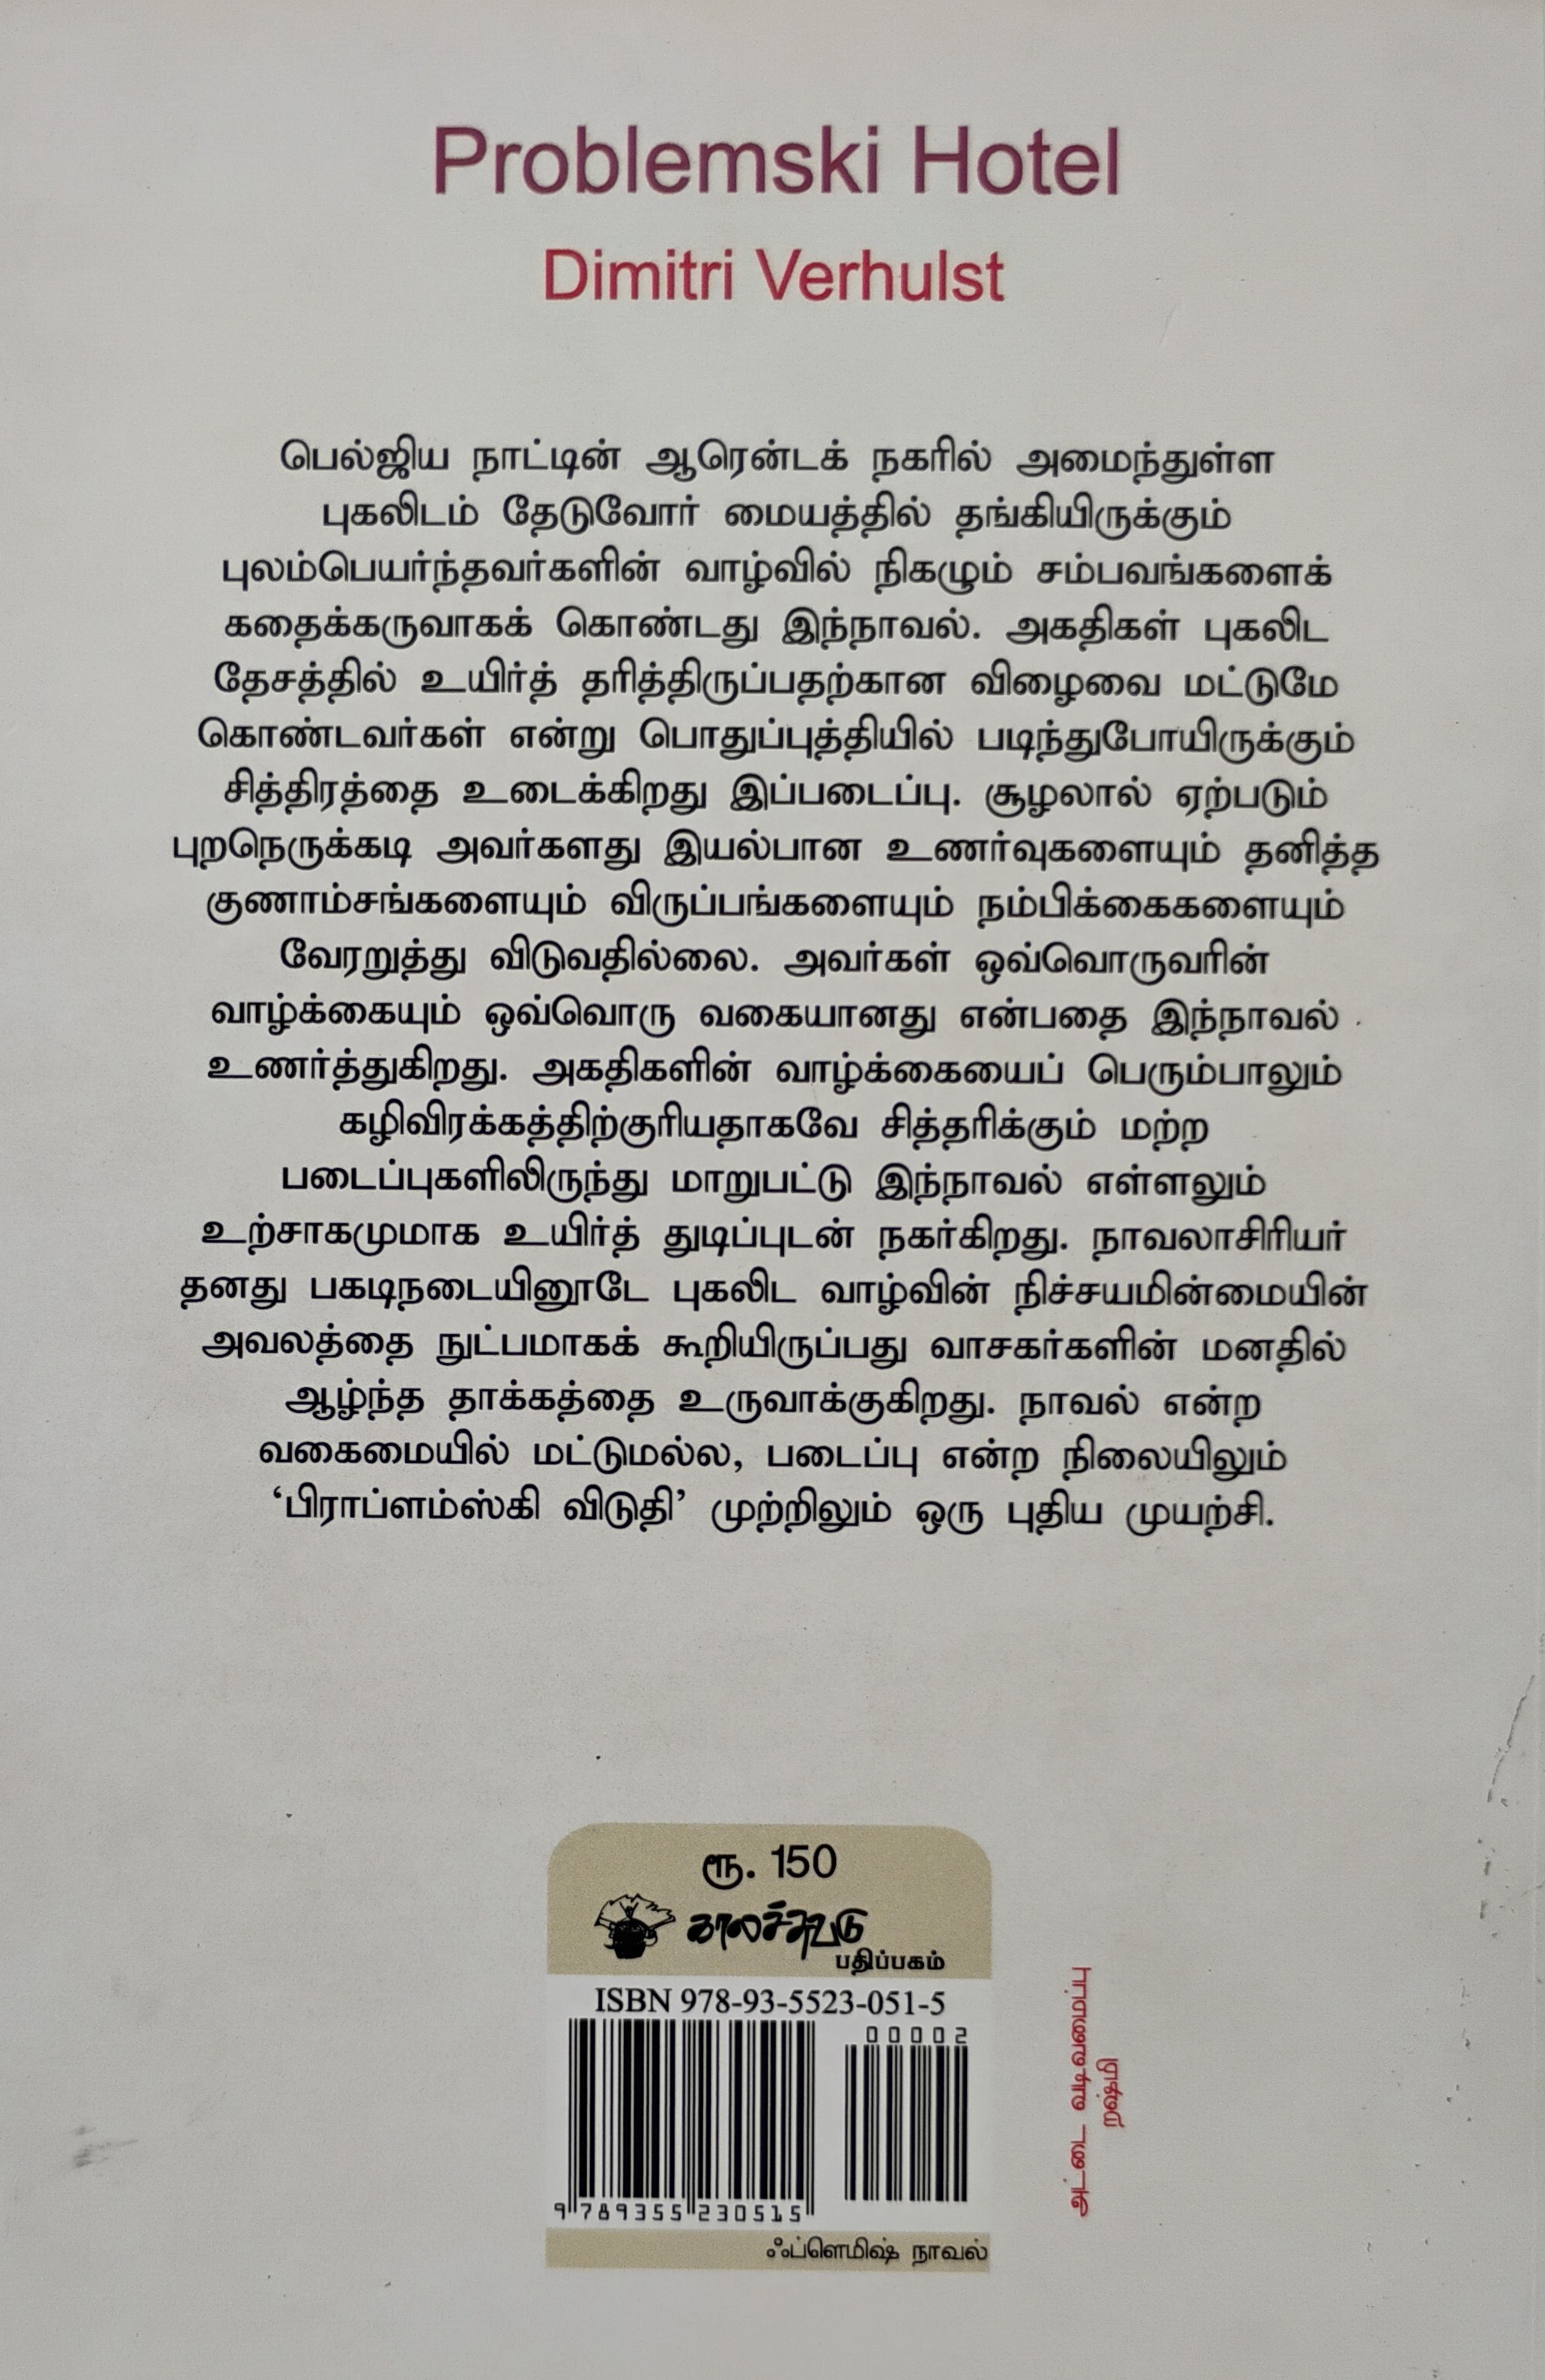 Problemski Hotel
Dimitri Verhulst
பெல்ஜிய நாட்டின் ஆரென்டக் நகரில் அமைந்துள்ள
புகலிடம் தேடுவோர் மையத்தில் தங்கியிருக்கும்
புலம்பெயர்ந்தவர்களின் வாழ்வில் நிகழும் சம்பவங்களைக்
கதைக்கருவாகக் கொண்டது இந்நாவல். அகதிகள் புகலிட
தேசத்தில் உயிர்த் தரித்திருப்பதற்கான விழைவை மட்டுமே
கொண்டவர்கள் என்று பொதுப்புத்தியில் படிந்துபோயிருக்கும்
சித்திரத்தை உடைக்கிறது இப்படைப்பு. சூழலால் ஏற்படும்
புறநெருக்கடி அவர்களது இயல்பான உணர்வுகளையும் தனித்த
குணாம்சங்களையும் விருப்பங்களையும் நம்பிக்கைகளையும்
வேரறுத்து விடுவதில்லை. அவர்கள் ஒவ்வொருவரின்
வாழ்க்கையும் ஒவ்வொரு வகையானது என்பதை இந்நாவல்
உணர்த்துகிறது. அகதிகளின் வாழ்க்கையைப் பெரும்பாலும்
கழிவிரக்கத்திற்குரியதாகவே சித்தரிக்கும் மற்ற
படைப்புகளிலிருந்து மாறுபட்டு இந்நாவல் எள்ளலும்
உற்சாகமுமாக உயிர்த் துடிப்புடன் நகர்கிறது. நாவலாசிரியர்
தனது பகடிநடையினூடே புகலிட வாழ்வின் நிச்சயமின்மையின்
அவலத்தை நுட்பமாகக் கூறியிருப்பது வாசகர்களின் மனதில்
ஆழ்ந்த தாக்கத்தை உருவாக்குகிறது. நாவல் என்ற
வகைமையில் மட்டுமல்ல, படைப்பு என்ற நிலையிலும்
‘பிராப்ளம்ஸ்கி விடுதி’ முற்றிலும் ஒரு புதிய முயற்சி.
ரூ. 150
காலச்சுவடு
பதிப்பகம்
ISBN 978-93-5523-051-5
00002
9 789355 230515
ஃப்ளெமிஷ் நாவல்
அட்டை வடிவமைப்பு
றஷ்மி